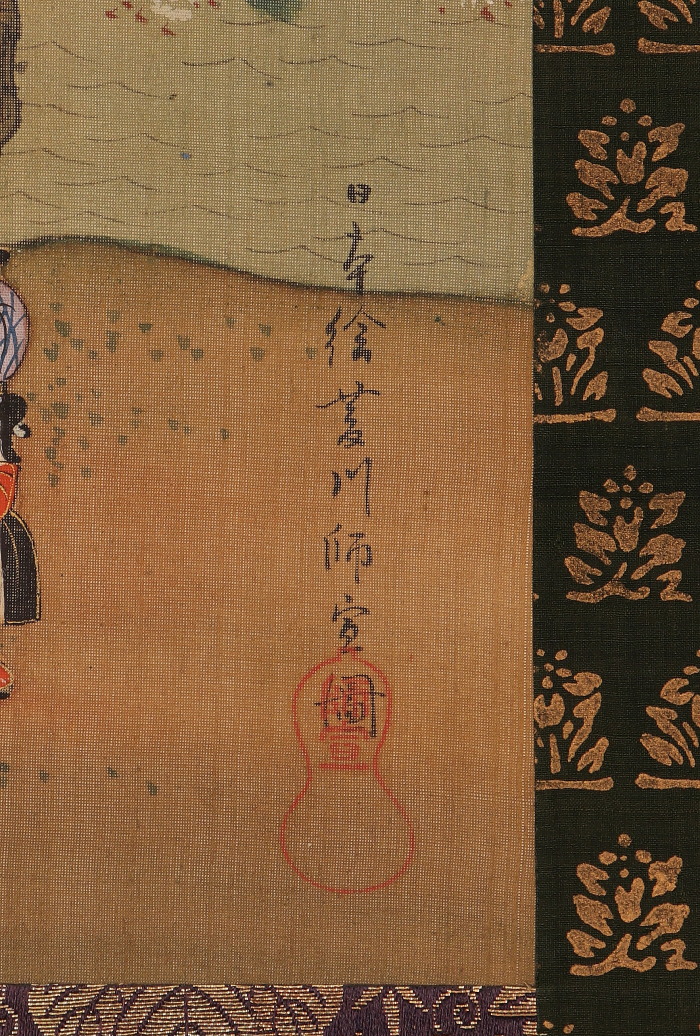 日本絵菱川師宣圖
師宣